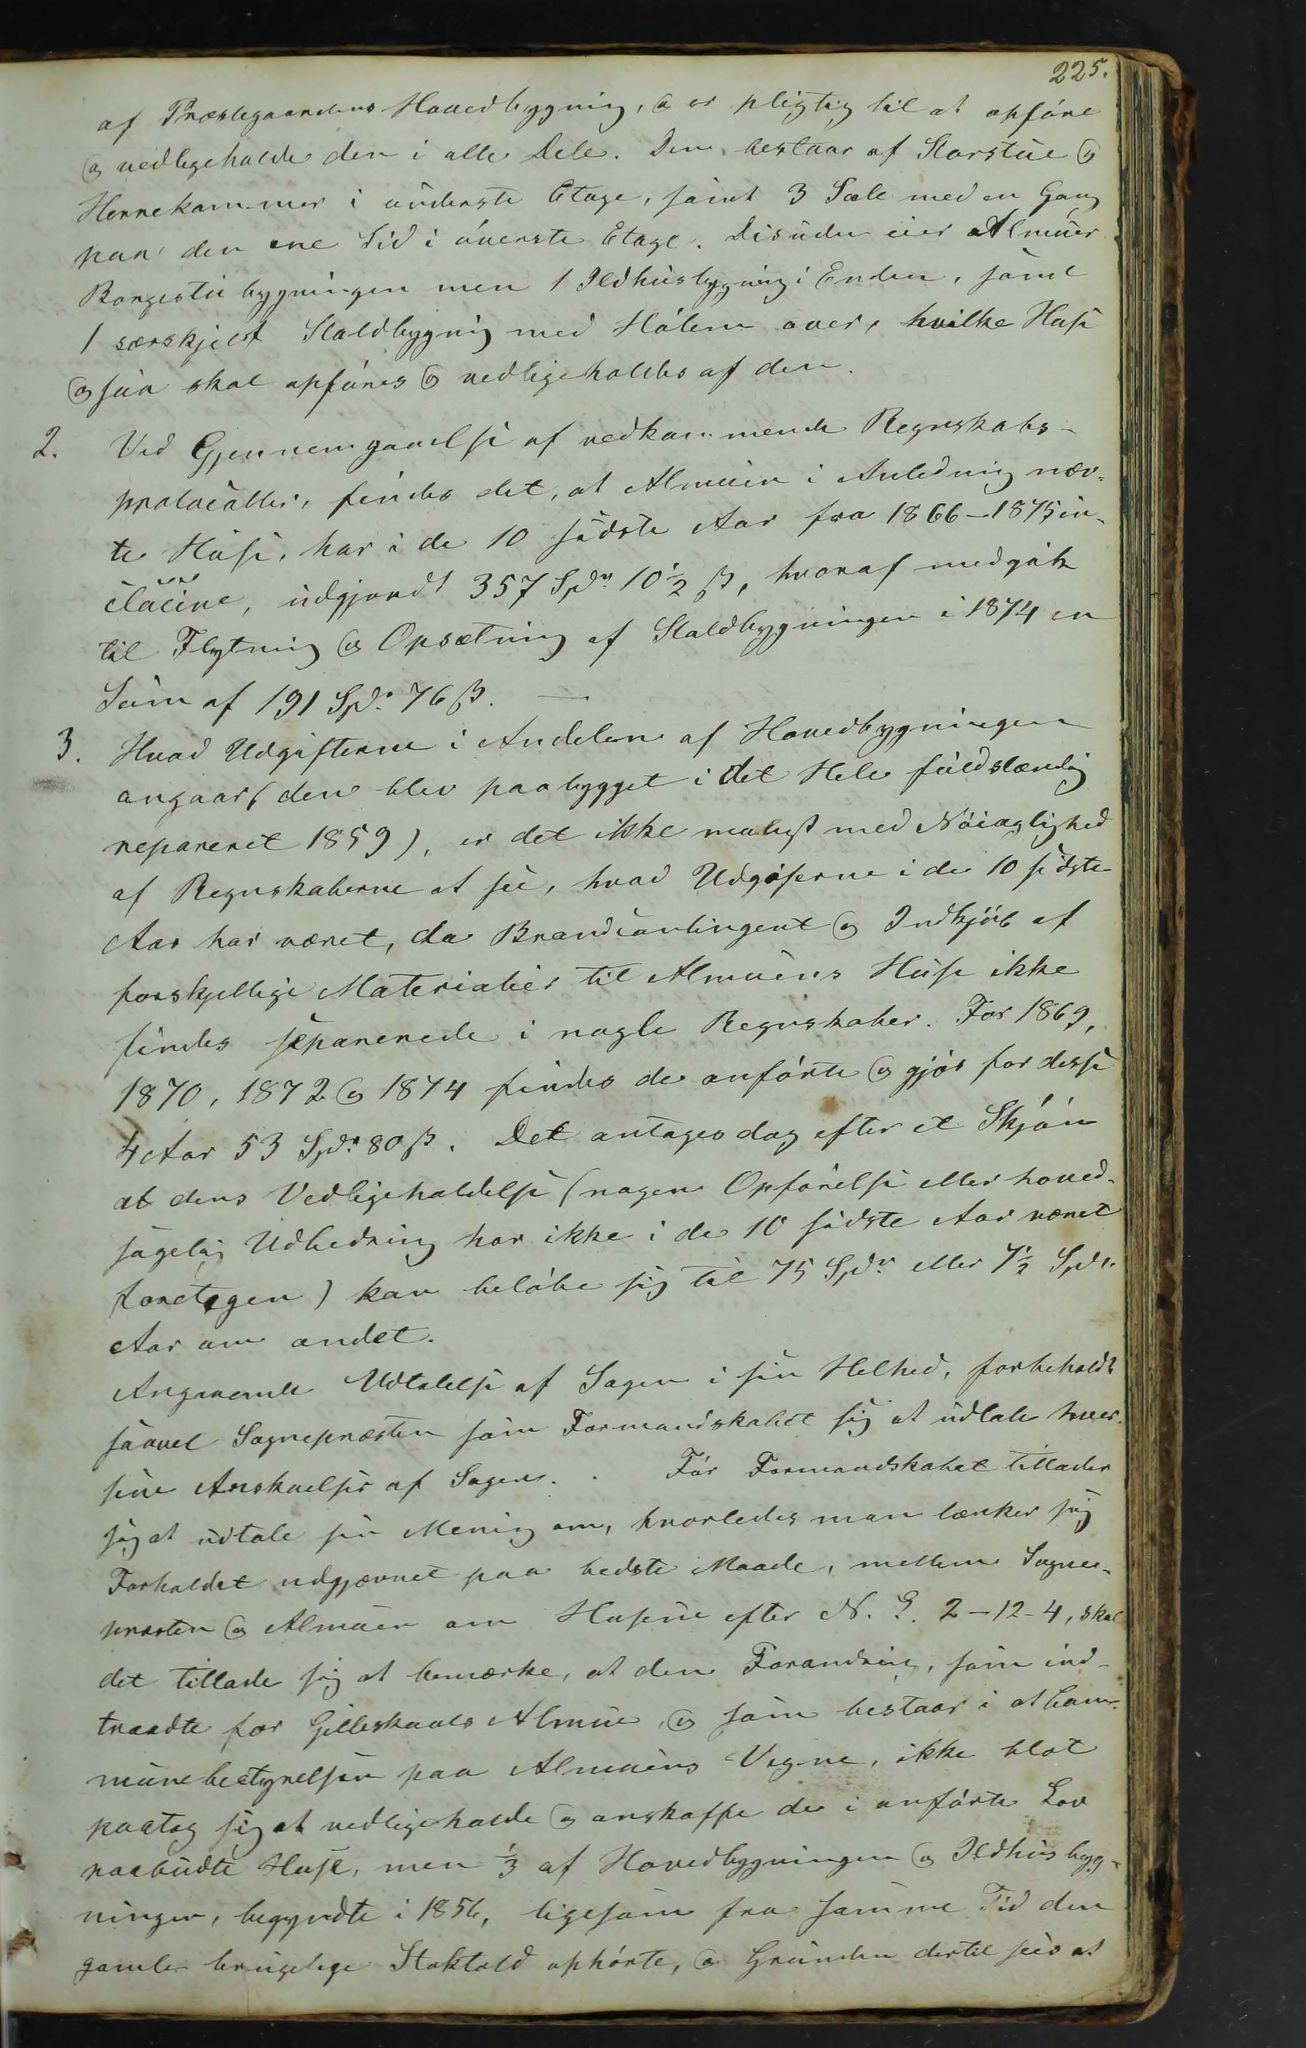 225.
af Præstegaardens Hovedbygning, og er pligtig til at opføre
og vedligeholde den i alle Dele. Den bestaar af Storstue og
Herrekammer i underste Etage, samt 3 Sale med en Gang
paa den ene Sid i øverste Etage. Desuden eier Almuen
Borgestubygningen men 1 Ildhusbygning i Enden, samt
1 særskjelt Staldbygning med Hølem over, hvilke Huse
ogsaa skal opføres og vedligeholdes af den.
2. Ved Gjennemgaaelse af vedkommende Regnskabs-
protocoller, findes det, at Almuen i Anledning næv-
te Huse, har i de 10 sidste Aar fra 1866-1875 in-
clucive, udgjordt 357 Spd. 10½ ß, hvoraf medgik
til Flytning og Opsætning af Staldbygningen i 1874 en
Sum af 191 Spd. 76 ß. —
3. Hvad Udgifterne i Andelen af Hovedbygningen
angaar (den blev paabygget i det Hele fuldstændig
repareret 1859), er det ikke muligt med Nøiaglighed
af Regnskaberne at see, hvad Udgifterne i de 10 sidste
Aar har været, da Brandcontingent og Indkjøb af
forskjellige Materialier til Almuens Huse ikke
findes separerede i nogle Regnskaber. For 1869,
1870, 1872 og 1874 findes de anførte og gjør for disse
4 Aar 53 Spd. 80 ß. Det antages dog efter et Skjøn
at dens Vedligeholdelse (nogen Opførelse eller hoved-
sagelig Udbedring har ikke i de 10 sidste Aar været
foretagen) kan beløbe sig til 75 Spd. eller 7½ Spd.
Aar om andet.
Angaaende Udtalelse af Sagen i sin Helhed, forbeholdt
saavel Sognepræsten som Formandskabet sig at udtale hver
sine Anskuelser af Sagen. Før Formandskabet tillader
sig at udtale sin Mening om, hvorledes man tænker sig
Forholdet udgjævnet paa bedste Maade, mellem Sogne-
præsten og Almuen om Husene efter N. L. 2-12-4, skal
det tillade sig at bemærke, at den Forandring, som ind-
traadte for Gilleskaals Almue, og som bestaar i at Com-
munebestyrelsen paa Almuens Vegne, ikke blot
paatog sig at vedligeholde og anskaffe de i anførte Lov
paabudte Huse, men ⅓ af Hovedbygningen og Ildhusbyg-
ningen, begyndte i 1856, ligesom fra samme Tid den
gamle brugelige Stoktold ophørte, og Grunden dertil sees at